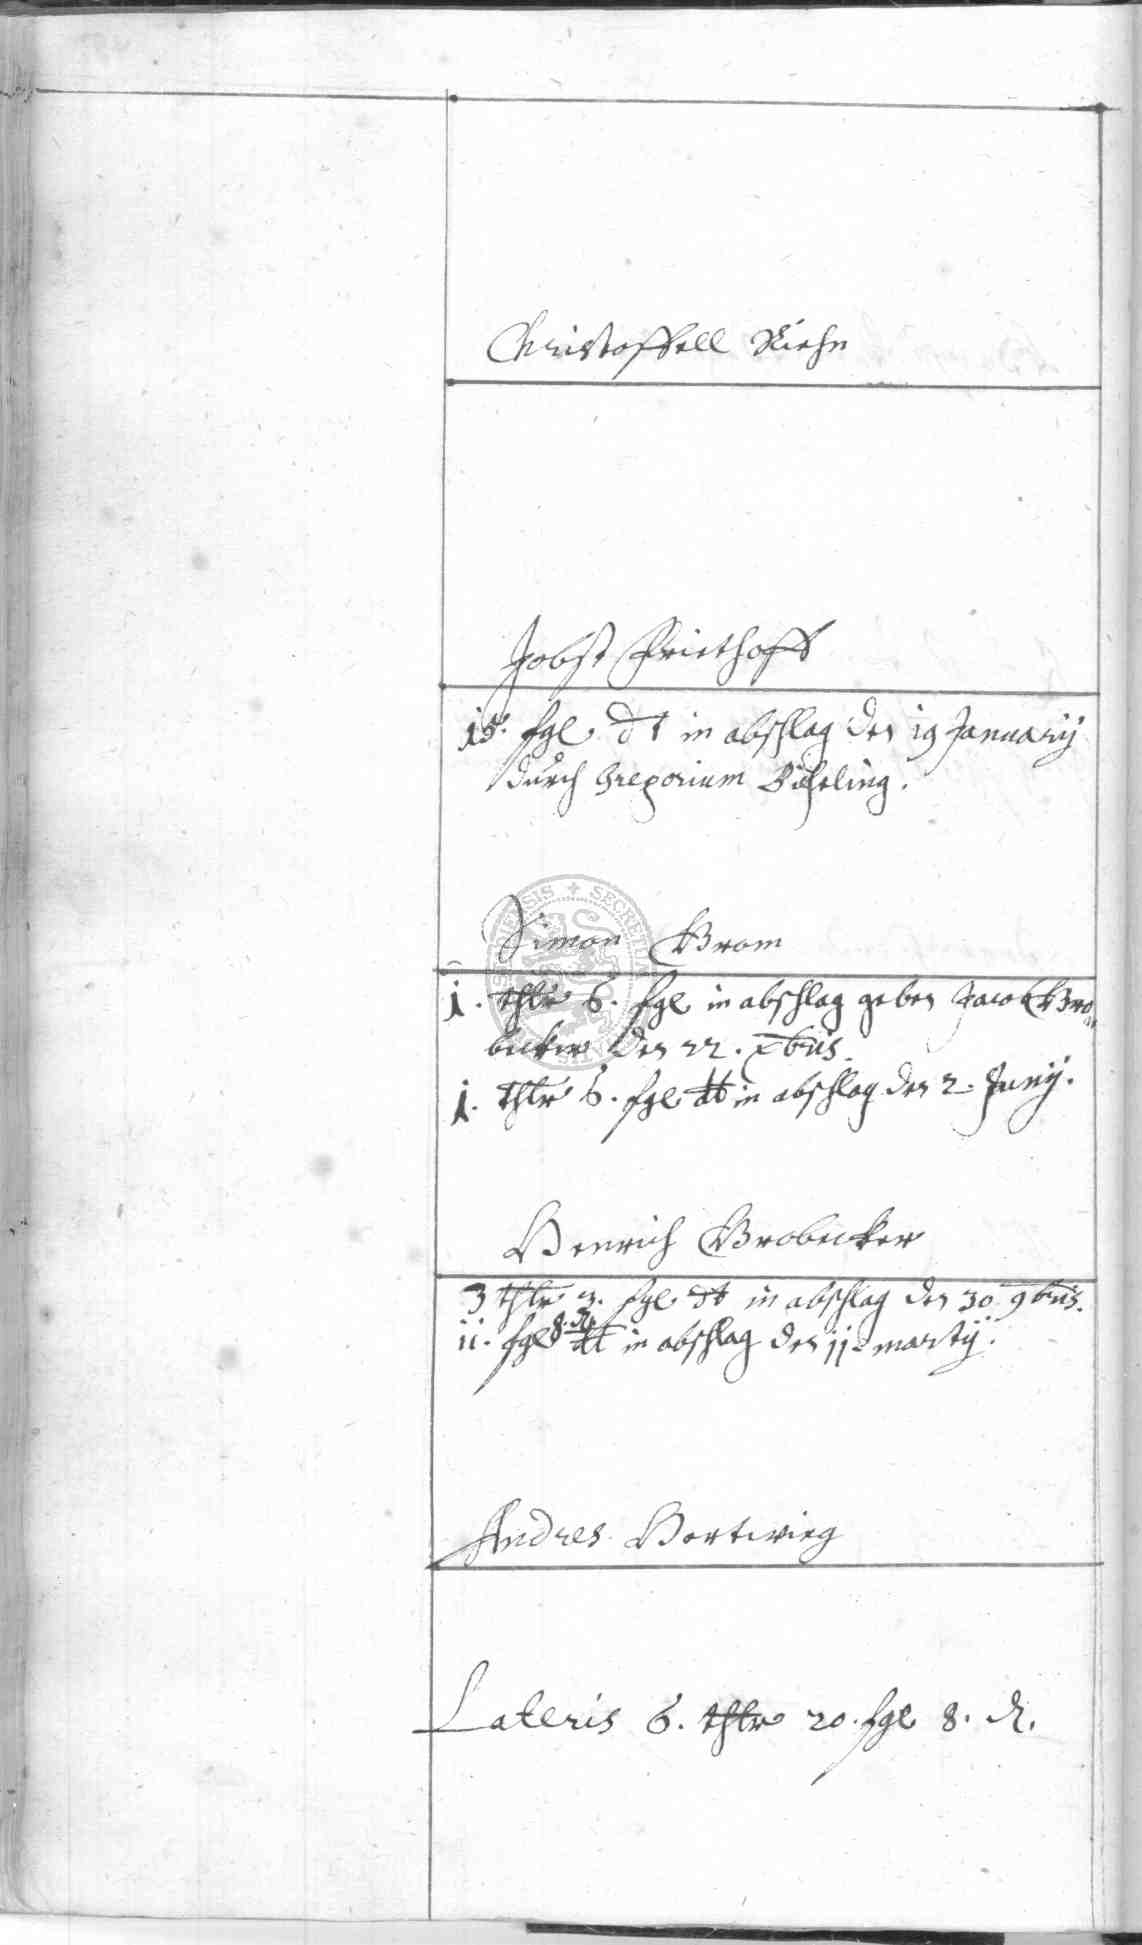 Christoffell Kiehn
Jobst Friethoff
15. sgl. dt in abschlag den 19 January
durch Gregorium
Simon Brom
1. thlr 6. sgl in abschlag geben Jacob Bro
becker den 22. xbris.
1. thlr 6. sgl dt in abschlag den 2. Juny.
Henrich Brobecker
3 thlr 3. sgl dt in abschlag den 30 9bris.
11. sgl 8. d. dt in abschlag den 11. marty.
Andres Hertwieg
Lateris 6. thlr 20. sgl 8. d.